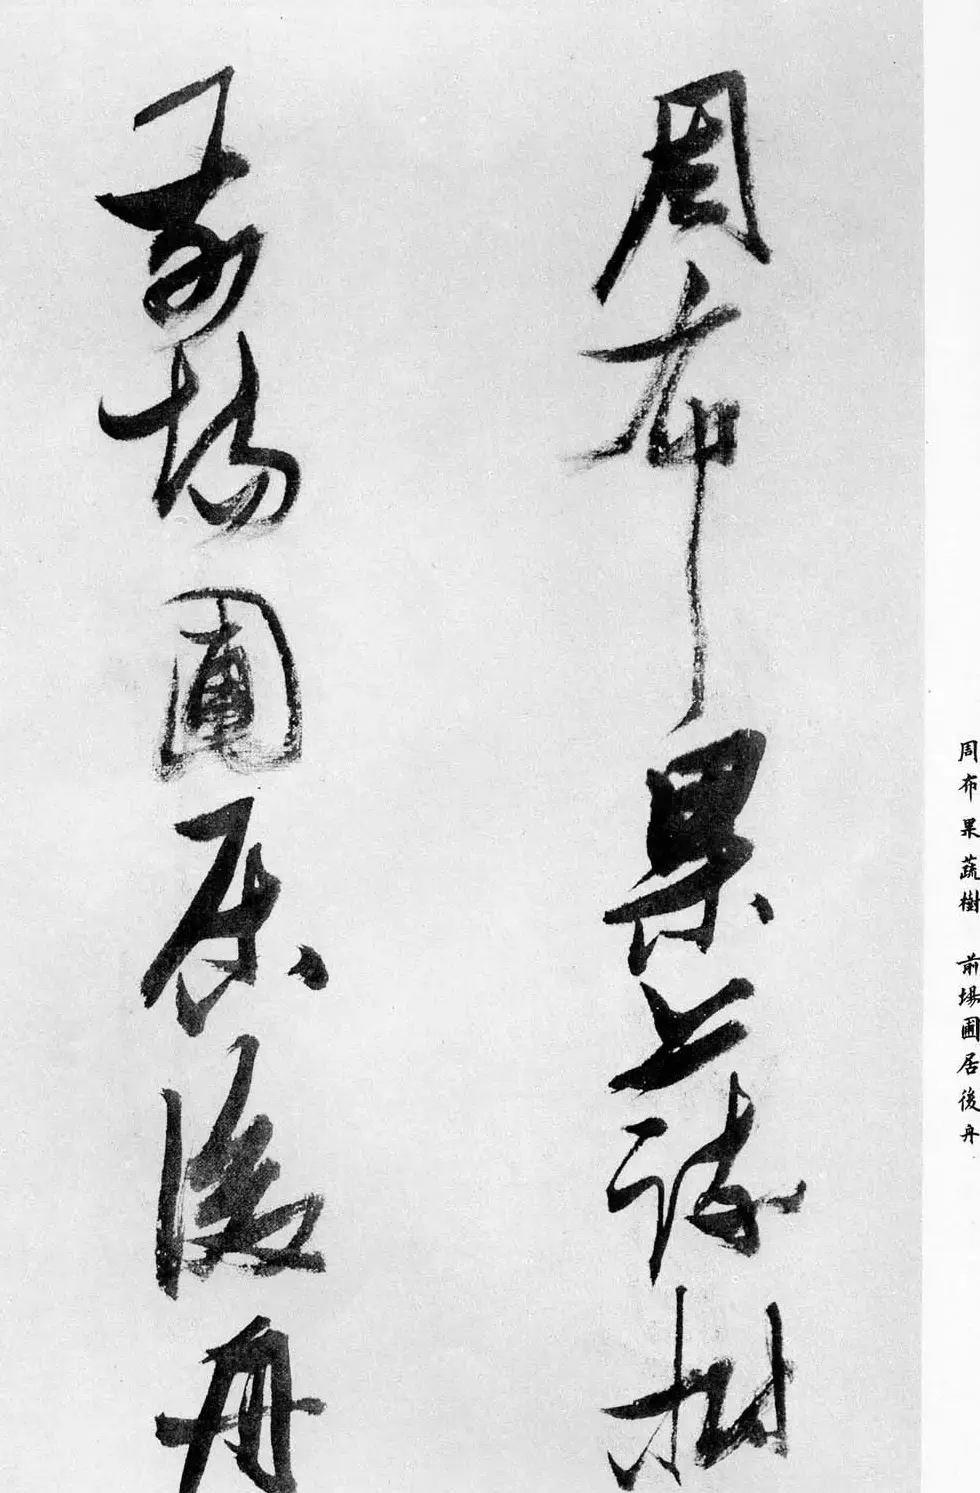 周布果蔬樹
前場圃居後舟
周布果蔬樹 前場圃居後舟